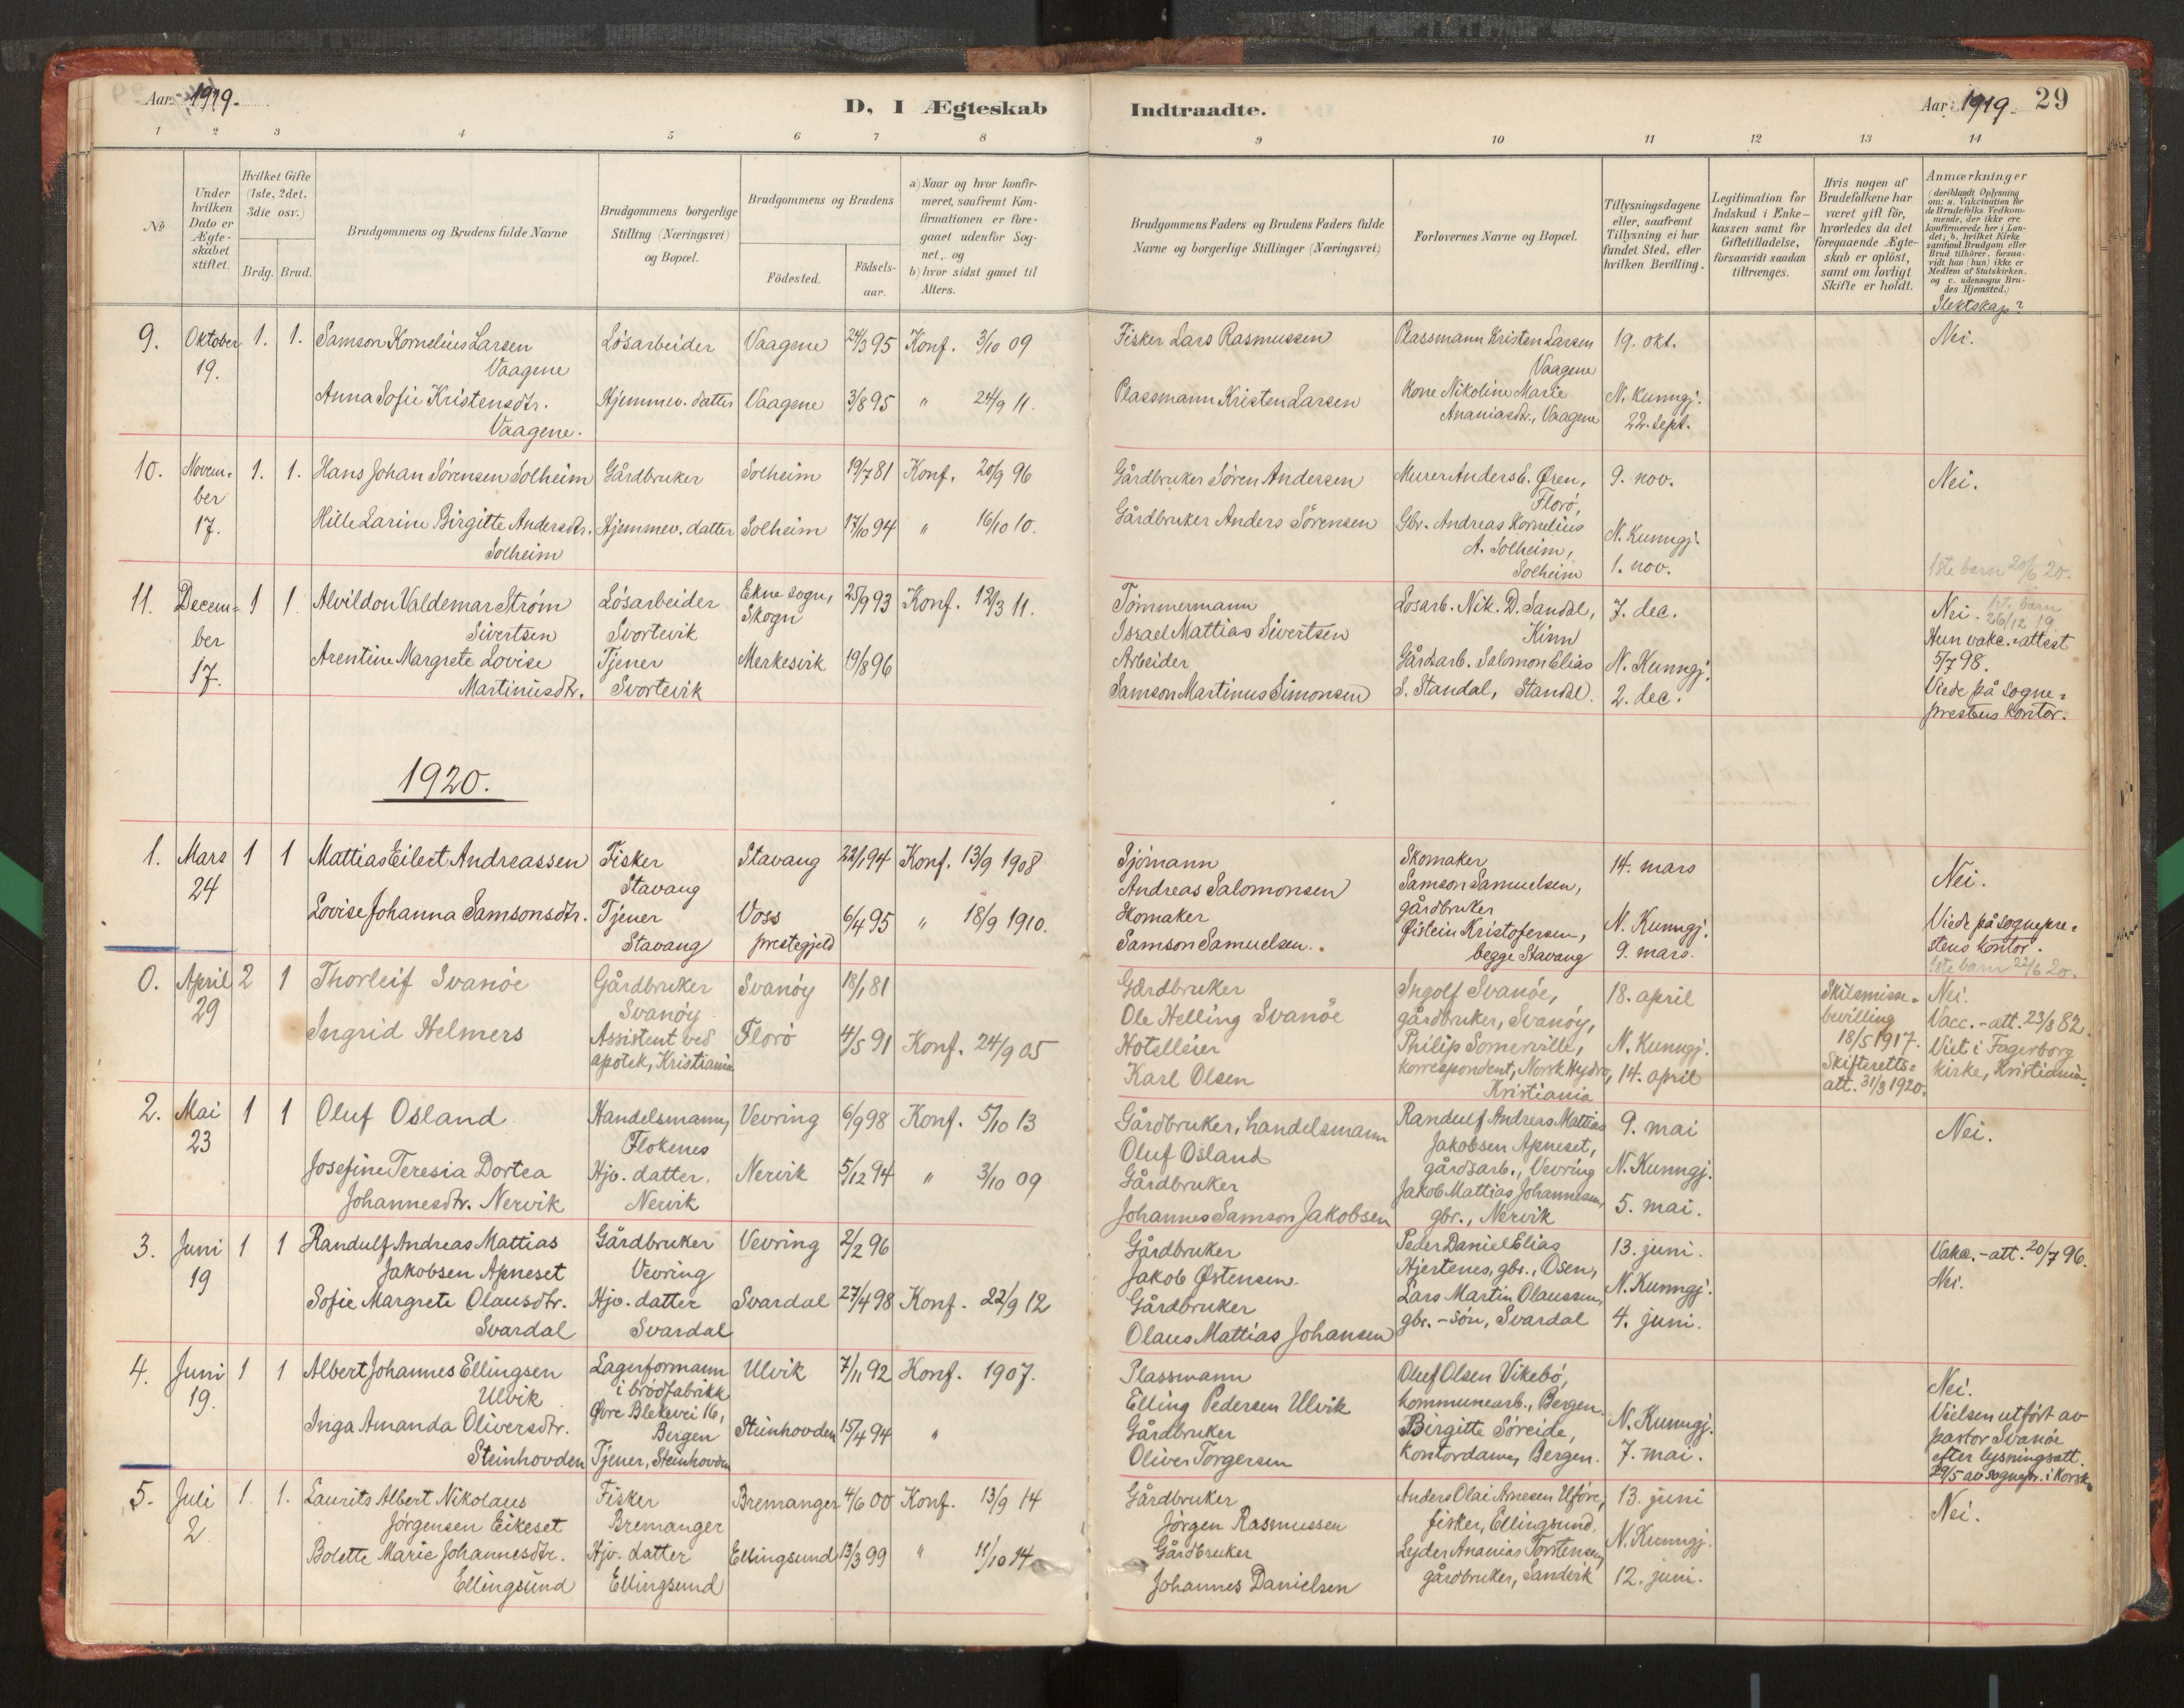 Aar: 1919.
D, I Ægteskab
Indtraadte.
Aar: 1919.
29
1 2 3 4 5 6 7 8 9 10 11 12 13 14
No
Under
hvilken
Dato er
Ægte-
skabet
stiftet.
Hvilket Gifte
(1ste, 2det,
3die osv.)
Brdg. Brud.
Brudgommens og Brudens fulde Navne
Brudgommens borgerlige
Stilling (Næringsvei)
og Bopæl.
Brudgommens og Brudens
Födested.
Födsels-
aar.
a) Naar og hvor konfir-
meret, saafremt Kon-
firmationen er fore-
gaaet udenfor Sog-
net, og
b) hvor sidst gaaet til
Alters.
Brudgommens Faders og Brudens Faders fulde
Navne og borgerlige Stillinger (Næringsvei)
Forlovernes Navne og Bopæl.
Tillysningsdagene
eller, saafremt
Tillysning ei har
fundet Sted, efter
hvilken Bevilling.
Legitimation for
Indskud i Enke-
kassen samt for
Giftetilladelse,
forsaavidt saadan
tiltrænges.
Hvis nogen af
Brudefolkene har
været gift för,
hvorledes da det
foregaaende Ægte-
skab er oplöst,
samt om lovligt
Skifte er holdt.
Anmærkninger
(deriblandt Oplysning
om: a. Vakcination for
de Brudefolks Vedkom-
mende, der ikke ere
konfirmerede her i Lan-
det; b. hvilket Kirke
samfund Brudgom eller
Brud tilhörer, forsaa-
vidt han (hun) ikke er
Medlem af Statskirken.
og c. udensogns Bru-
des Hjemsted.)
Slektskap?
9.
Oktober
19.
1. 1.
Samson Kornelius Larsen
Vaagene
Løsarbeider
Vaagene
24/3 95
Konf. 3/10 09
Fisker Lars Rasmussen
Plassmann Kristen Larsen
Vaagene
19. okt.
Nei.
Anna Sofie Kristensdtr.
Vaagene.
Hjemmev. datter
Vaagene
3/8 95
" 24/9 11.
Plassmann Kristen Larsen
Kone Nikoline Marie
Ananiasdtr., Vaagene
N. Kunngj.
22. sept.
10.
Novem-
ber
17.
1. 1.
Hans Johan Sørensen Solheim
Gårdbruker
Solheim
19/7 81
Konf. 20/9 96
Gårdbruker Søren Andersen
Murer Anders E. Øren,
Florø,
9. nov.
Nei.
Hille Larine Birgitte Andersdtr.
Solheim
Hjemmev. datter
Solheim
17/10 94
" 16/10 10.
Gårdbruker Anders Sørensen
Gbr. Andreas Kornelius
A. Solheim,
Solheim
N. Kunngj.
1. nov.
1ste barn 20/6 20.
11.
Decem-
ber
17.
1 1.
Alvildon Valdemar Strøm
Sivertsen
Løsarbeider
Svortevik
Ekne sogn,
Skogn
25/9 93
Konf. 12/3 11.
Tømmermann
Israel Mattias Sivertsen
Losarb. Nik. D. Sandal,
Kinn
7. dec.
Nei. 1ste barn
26/12 19.
Hun vakc.-attest
5/7 98.
Viede på sogne-
prestens kontor.
Arentine Margrete Lovise
Martinusdtr.
Tjener
Svortevik
Merkesvik
19/8 96
Arbeider
Samson Martinus Simonsen
Gårdsarb. Salomon Elias
S. Standal, Standal.
N. Kunngj.
2. dec.
1920.
1.
Mars
24
1 1
Mattias Eilert Andreassen
Fisker
Stavang
Stavang
22/1 94
Konf. 13/9 1908
Sjømann
Andreas Salomonsen
Skomaker
Samson Samuelsen,
14. mars
Nei.
Lovise Johanna Samsonsdtr.
Tjener
Stavang
Voss
prestegjeld
6/4 95
" 18/9 1910.
Skomaker
Samson Samuelsen.
gårdbruker
Øistein Kristofersen,
begge Stavang
N. Kunngj.
9. mars.
Viede på sognepre-
stens kontor.
1ste barn 22/6 20.
0.
April
29
2 1
Thorleif Svanöe
Gårdbruker
Svanöy
Svanöy
18/1 81
Gårdbruker
Ole Helling Svanöe
Ingolf Svanöe,
gårdbruker, Svanöy,
18. april
Skilsmisse-
bevilling
18/5 1917.
Skifteretts-
att. 31/3 1920.
Nei.
Vacc.-att. 23/8 82.
Viet i Fagerborg
kirke, Kristiania.
Ingrid Helmers
Assistent ved
apotek, Kristiania
Florö
4/5 91
Konf. 24/9 05
Hotelleier
Karl Olsen
Philip Somerville,
korrespondent, Norsk Hydro,
Kristiania
N. Kunngj.
14. april
2.
Mai
23
1 1
Oluf Osland
Handelsmann,
Flokenes
Vevring
6/9 98
Konf. 5/10 13
Gårdbruker, handelsmann
Oluf Osland
Randulf Andreas Mattias
Jakobsen Apneset,
gårdsarb., Vevring
9. mai
Nei.
Josefine Teresia Dortea
Johannesdtr. Nervik
Hjv. datter.
Nervik
Nervik
5/12 94
" 3/10 09
Gårdbruker
Johannes Samson Jakobsen
Jakob Mattias Johannesen,
gbr., Nervik
N. Kunngj.
5. mai.
3.
Juni
19
1 1
Randulf Andreas Mattias
Jakobsen Apneset
Gårdbruker
Vevring
Vevring
2/2 96
Gårdbruker
Jakob Østensen.
Peder Daniel Elias
Hjertenes, gbr., Osen,
13. juni.
Vakc.-att. 20/7 96.
Nei.
Sofie Margrete Olausdtr.
Svardal
Hjv. datter
Svardal
Svardal
27/4 98
Konf. 22/9 12
Gårdbruker
Olaus Mattias Johansen
Lars Martin Olaussen,
gbr.-sön, Svardal
N. Kunngj.
4. juni.
4.
Juni
19.
1 1
Albert Johannes Ellingsen
Ulvik
Lagerformann
i brödfabrikk
Øvre Blekevei 16,
Bergen
Ulvik
7/11 92
Konf. 1907.
Plassmann
Elling Pedersen Ulvik
Oluf Olsen Vikebö,
kommunearb., Bergen.
Nei.
Vielsen utført av
pastor Svanöe
efter lysningsatt.
29/5 av sognepr. i Korsk.
Inga Amanda Oliversdtr.
Steinhovden
Tjener, Steinhovden
Steinhovden
15/4 94
"
Gårdbruker
Oliver Torgersen
Birgitte Søreide,
Kontordame, Bergen.
N. Kunngj.
7. mai.
5.
Juli
2
1. 1.
Laurits Albert Nikolaus
Jørgensen Eikeset
Fisker
Bremanger
Bremanger
4/6 00
Konf. 13/9 14
Gårdbruker
Jørgen Rasmussen
Anders Olai Arnesen Uføre,
fisker, Ellingsund.
13. juni
Nei.
Bolette Marie Johannesdtr.
Ellingsund
Hjv. datter
Ellingsund
Ellingsund
13/3 99
" 11/10 14
Gårdbruker
Johannes Danielsen
Lyder Ananias Torstensen,
gårdbruker, Sandvik
N. Kunngj.
12. juni.